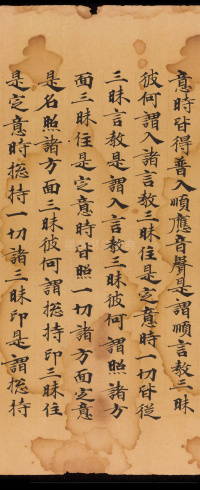 意時皆得普入順應音聲是謂順言教三昧
彼何謂入諸言教三昧住是定意時一切皆從
三昧言教是謂入言教三昧彼何謂照諸方
面三昧住是定意時皆照一切諸方面定意
是名照諸方面三昧彼何謂揔持印三昧住
是定意時揔持一切諸三昧印是謂揔持